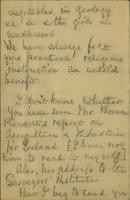 vegetables, in geology
& the girls in
needlework.
We have always felt
your practical religious
instruction an untold
benefit.
I don't know whether
you have seen Mr Horace
Plunkett's report on
Agriculture & Industries
for Ireland [I have not
time to read it myself]
Also, his address to the
Surveyors' Institute.
May I beg to send you